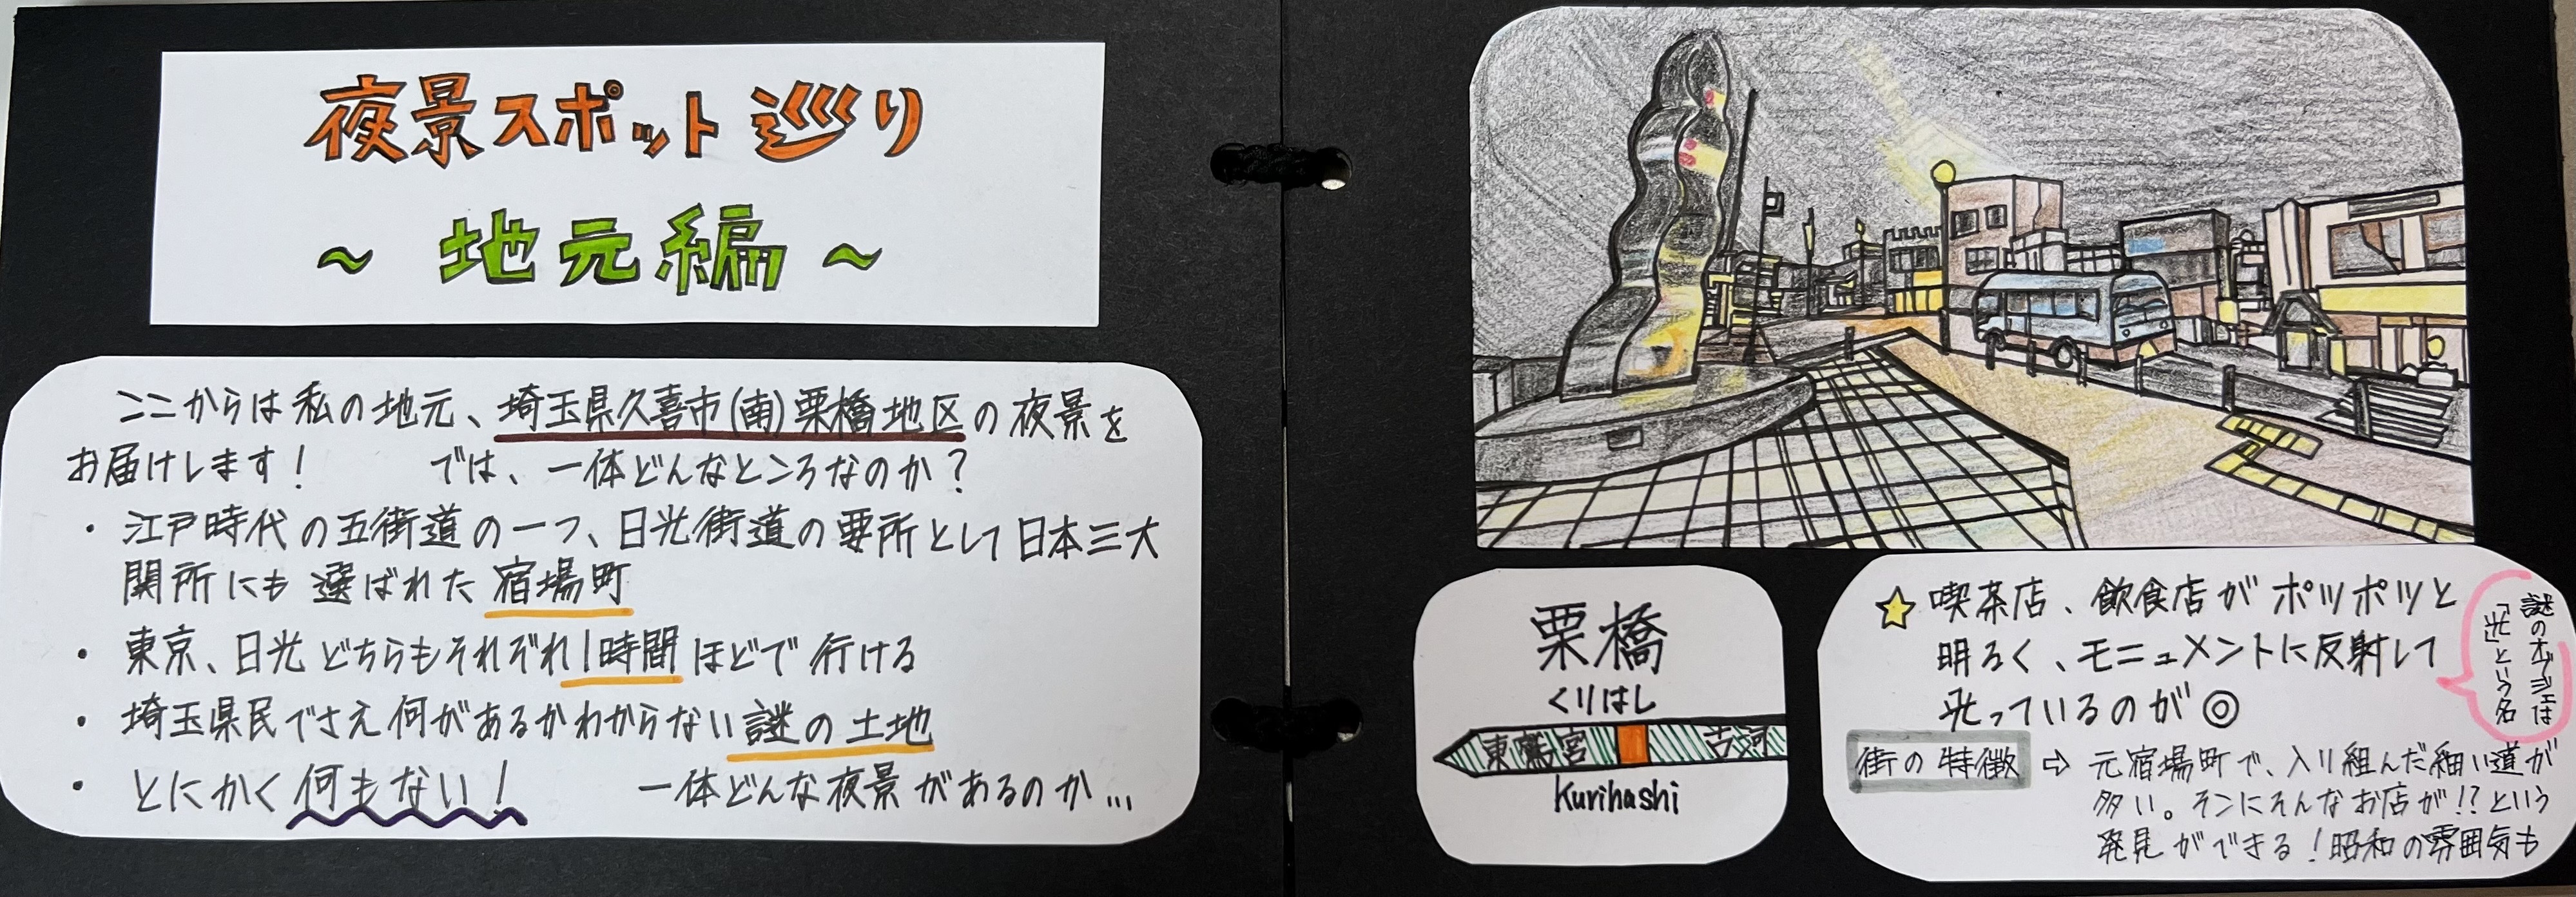 夜景スポット巡り
～地元編～
ここからは私の地元、埼玉県久喜市(南)栗橋地区の夜景を
お届けします！ では、一体どんなところなのか？
・江戸時代の五街道の一つ、日光街道の要所として日本三大
関所にも選ばれた宿場町
・東京、日光どちらもそれぞれ1時間ほどで行ける
・埼玉県民でさえ何があるかわからない謎の土地
・とにかく何もない！ 一体どんな夜景があるのか…
栗橋
くりはし
東鷲宮 古河
Kurihashi
☆喫茶店、飲食店がポツポツと
明るく、モニュメントに反射して
光っているのが◎
謎のオブジェは
「光」という名
街の特徴⇨元宿場町で、入り組んだ細い道が
多い。そこにそんなお店が!?という
発見ができる！昭和の雰囲気も